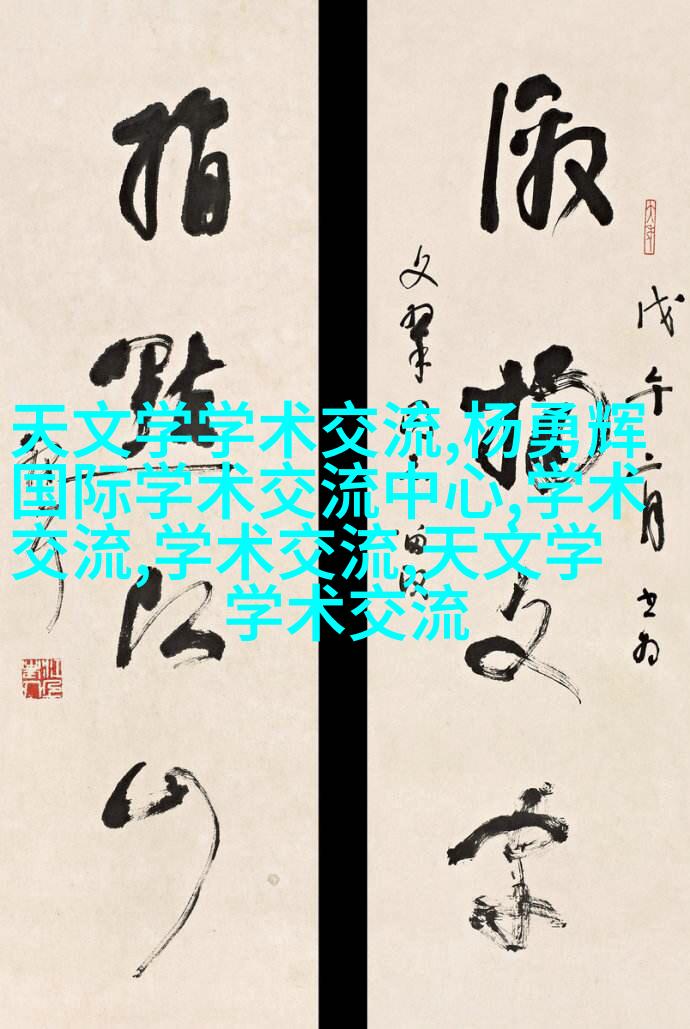 激扬文字
戊午六月书为
文翠
指点江山
天文学学术交流,杨勇辉
国际学术交流中心,学术
交流,学术交流,天文学
学术交流